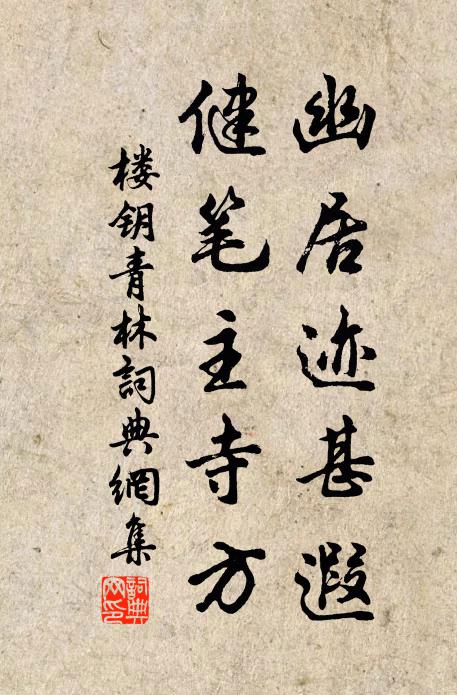 幽居迹甚遐
健笔主寺方
楼钥青林詞典網集
詞典
网印